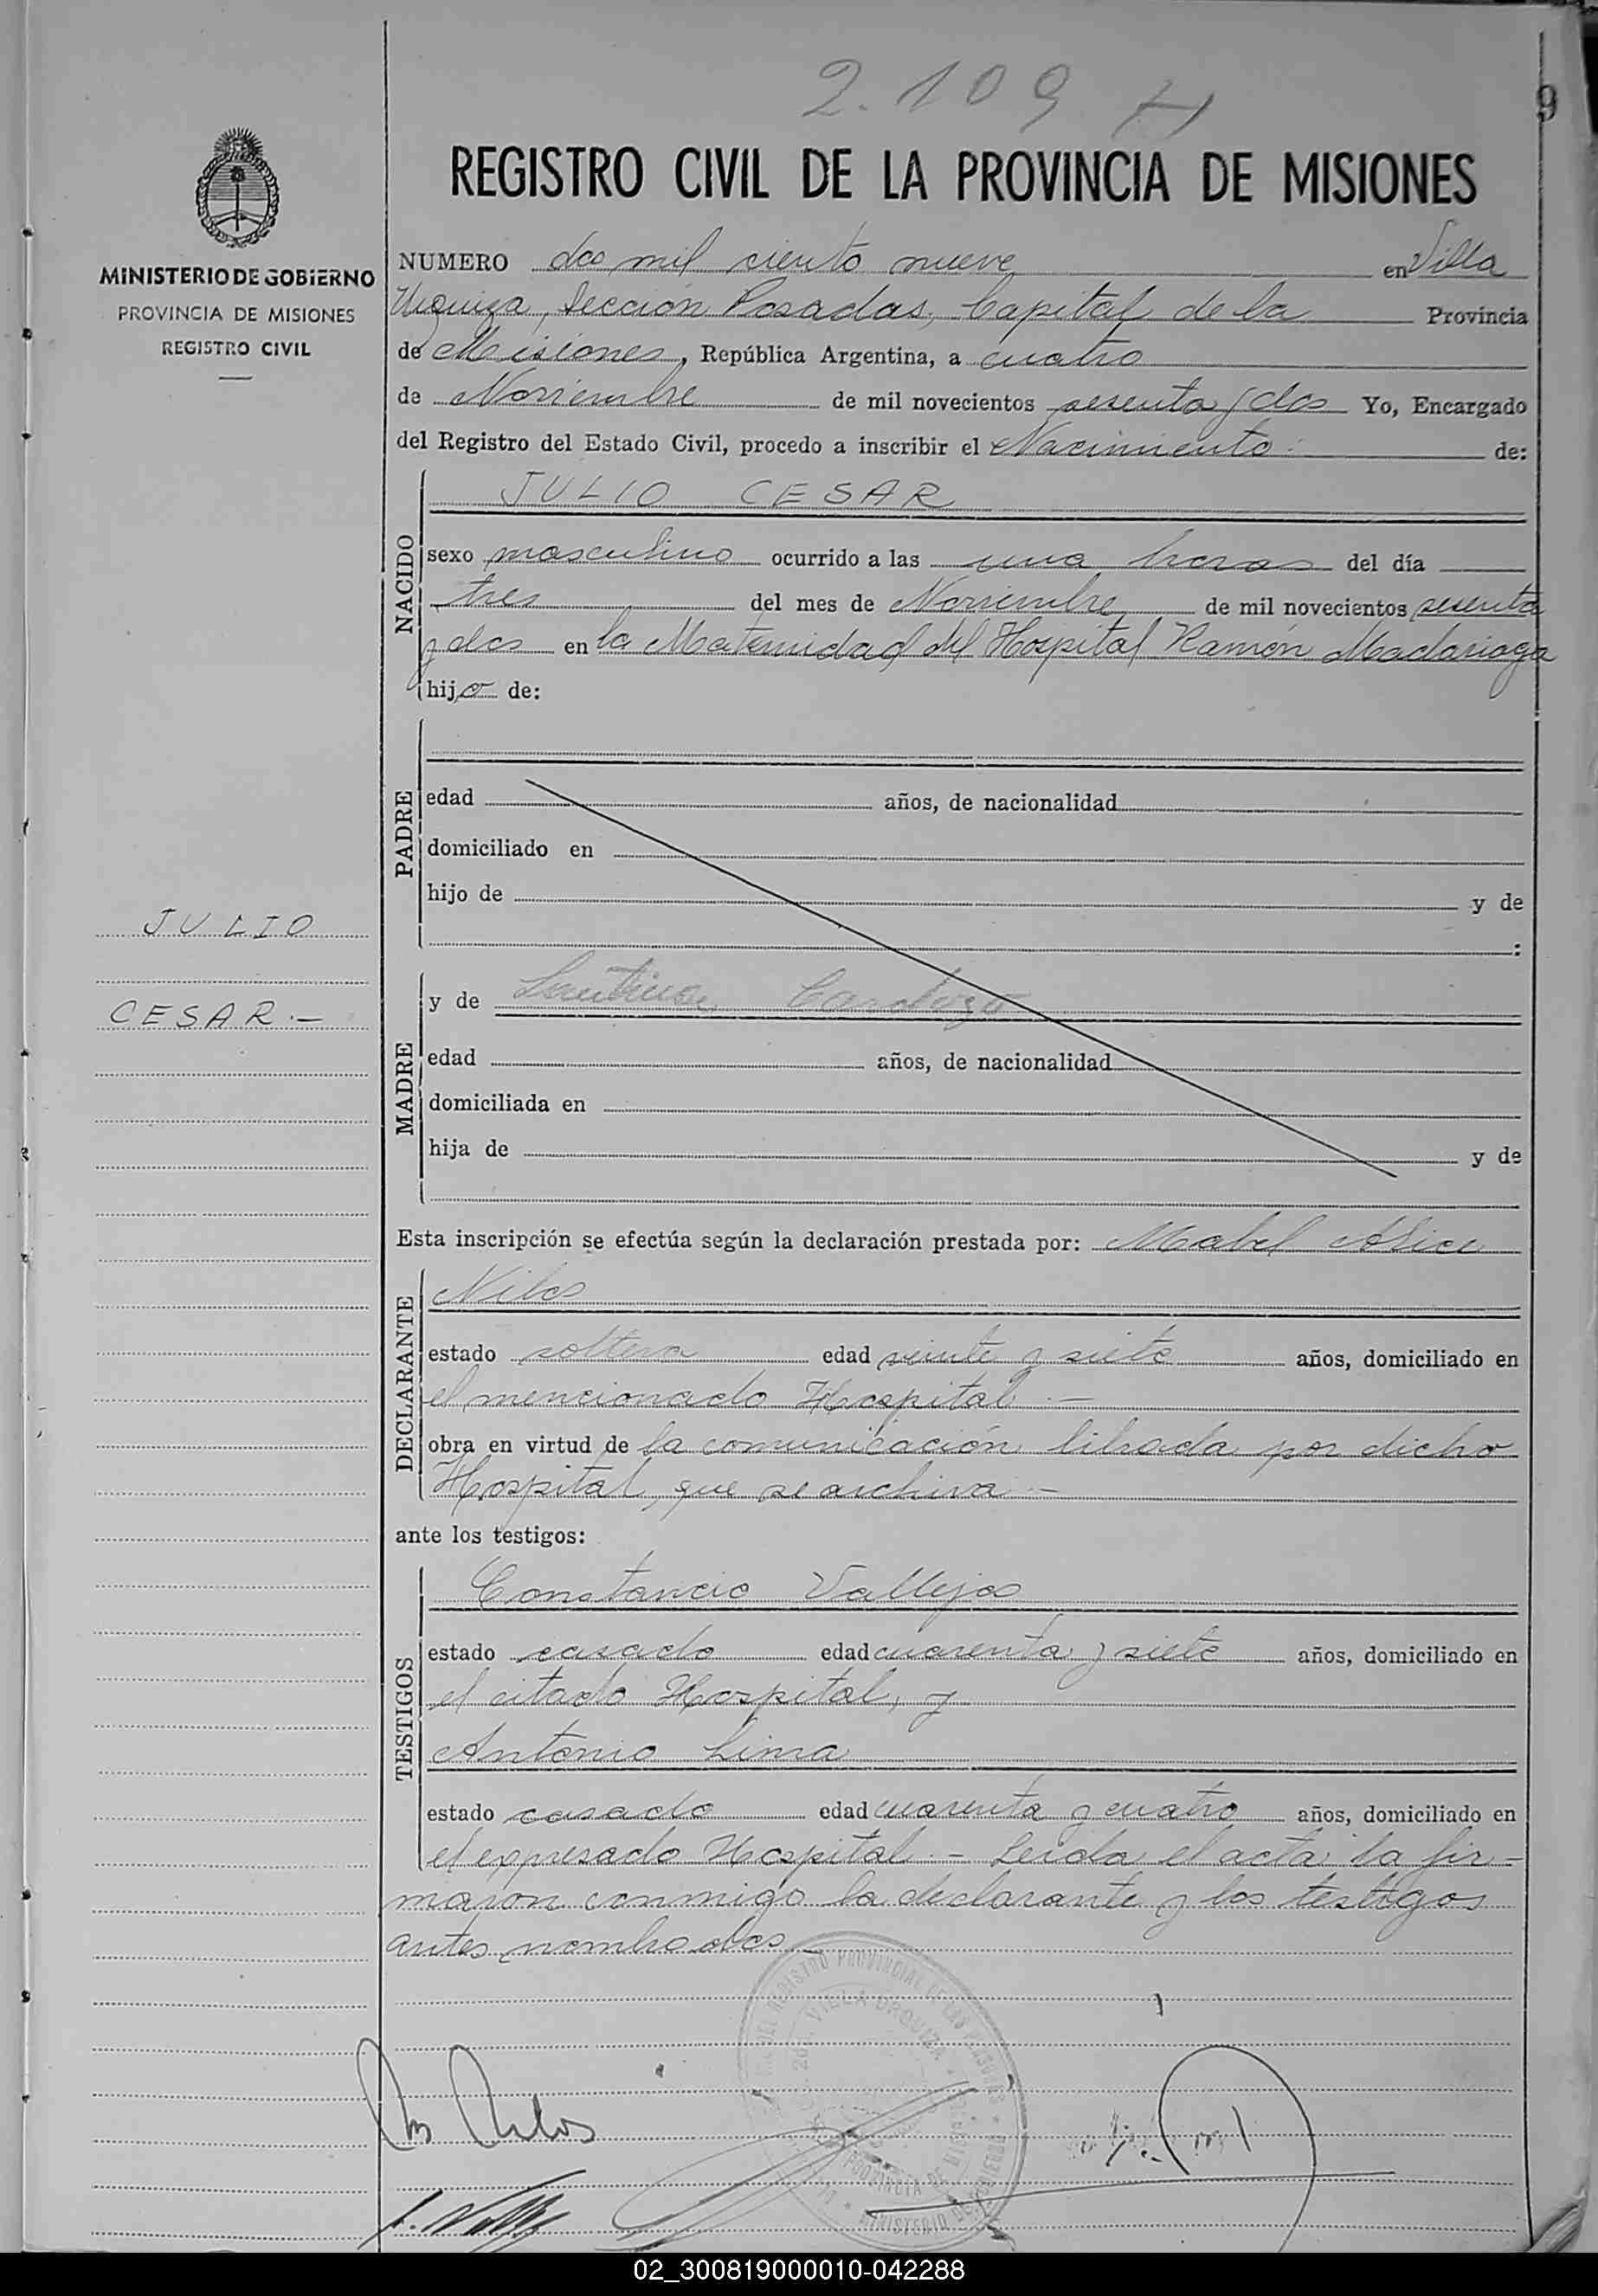 2.109
9
REGISTRO CIVIL DE LA PROVINCIA DE MISIONES
MINISTERIO DE GOBIERNO
PROVINCIA DE MISIONES
REGISTRO CIVIL
NUMERO dos mil ciento nueve en Villa
Urquiza, Sección Posadas, Capital de la Provincia
de Misiones, República Argentina, a cuatro
de Noviembre de mil novecientos sesenta y dos Yo, Encargado
del Registro del Estado Civil, procedo a inscribir el Nacimiento de:
NACIDO
JULIO CESAR
sexo masculino ocurrido a las una horas del día
tres del mes de Noviembre de mil novecientos sesenta
y dos en la Maternidad del Hospital Ramón Madariaga
hijo de:
PADRE
edad años, de nacionalidad
domiciliado en
hijo de y de
:
JULIO
CESAR.-
MADRE
y de Cardozo
edad años, de nacionalidad
domiciliada en
hija de y de
Esta inscripción se efectúa según la declaración prestada por: Mabel Alice
DECLARANTE
estado soltera edad veinte y siete años, domiciliado en
el mencionado Hospital.-
obra en virtud de la comunicación librada por dicho
Hospital, que se archiva.-
ante los testigos:
TESTIGOS
Constancio Vallejos
estado casado edad cuarenta y siete años, domiciliado en
el citado Hospital, y
Antonio Lima
estado casado edad cuarenta y cuatro años, domiciliado en
el expresado Hospital.- Leida el acta la fir-
maron conmigo la declarante y los testigos
antes nombrados.-
VILLA URQUIZA
02_300819000010-042288